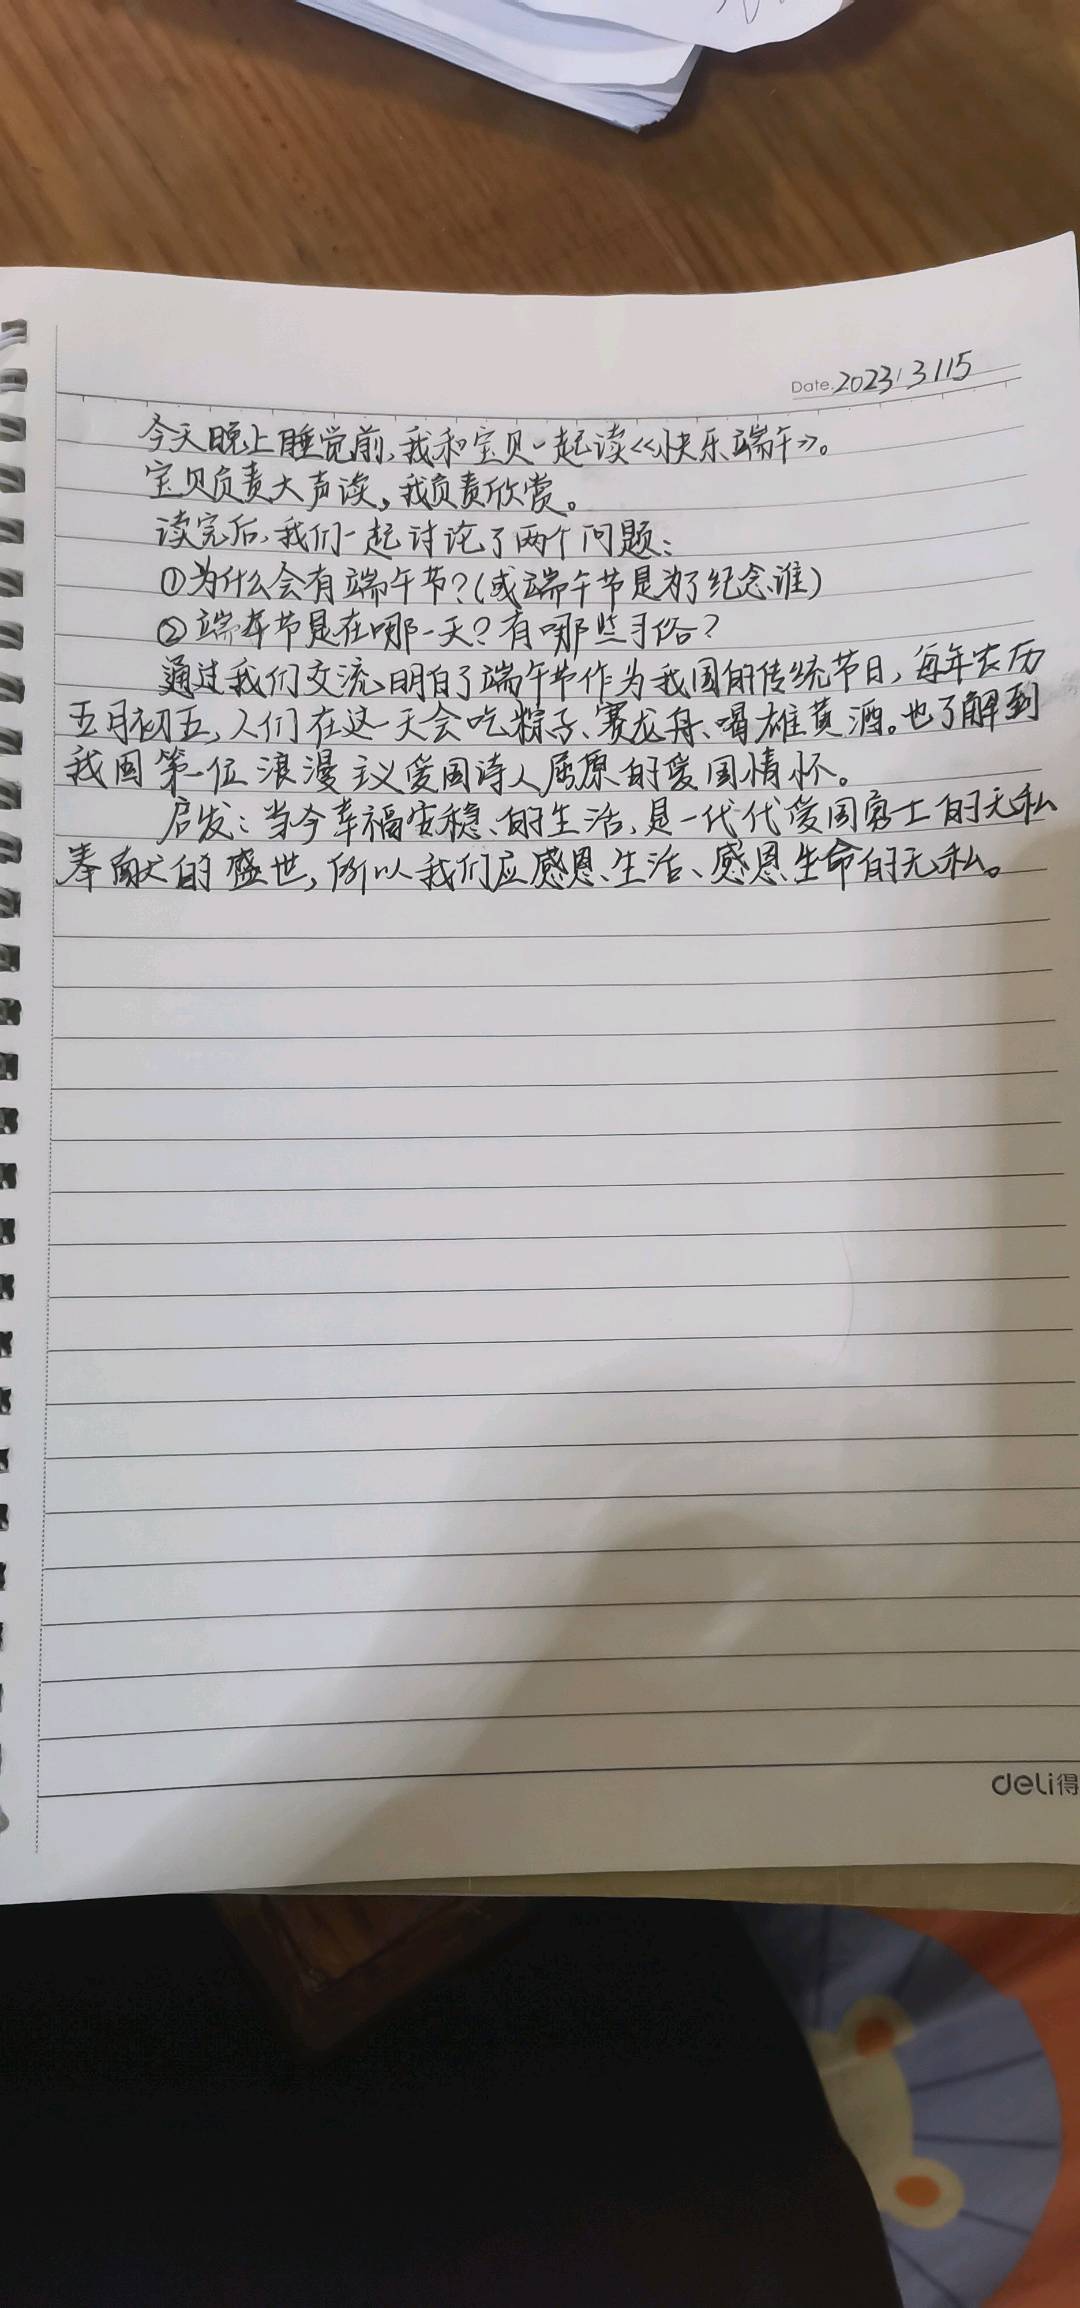 Date. 2023/3/15
今天晚上睡觉前,我和宝贝一起读《快乐端午》。
宝贝负责大声读,我负责欣赏。
读完后,我们一起讨论了两个问题:
①为什么会有端午节?(或端午节是为了纪念谁)
②端午节是在哪一天?有哪些习俗?
通过我们交流,明白了端午节作为我国的传统节日,每年农历
五月初五,人们在这一天会吃粽子、赛龙舟、喝雄黄酒。也了解到
我国第一位浪漫主义爱国诗人屈原的爱国情怀。
启发:当今幸福安稳的生活,是一代代爱国勇士的无私
奉献的盛世,所以我们应感恩生活、感恩生命的无私。
deli得